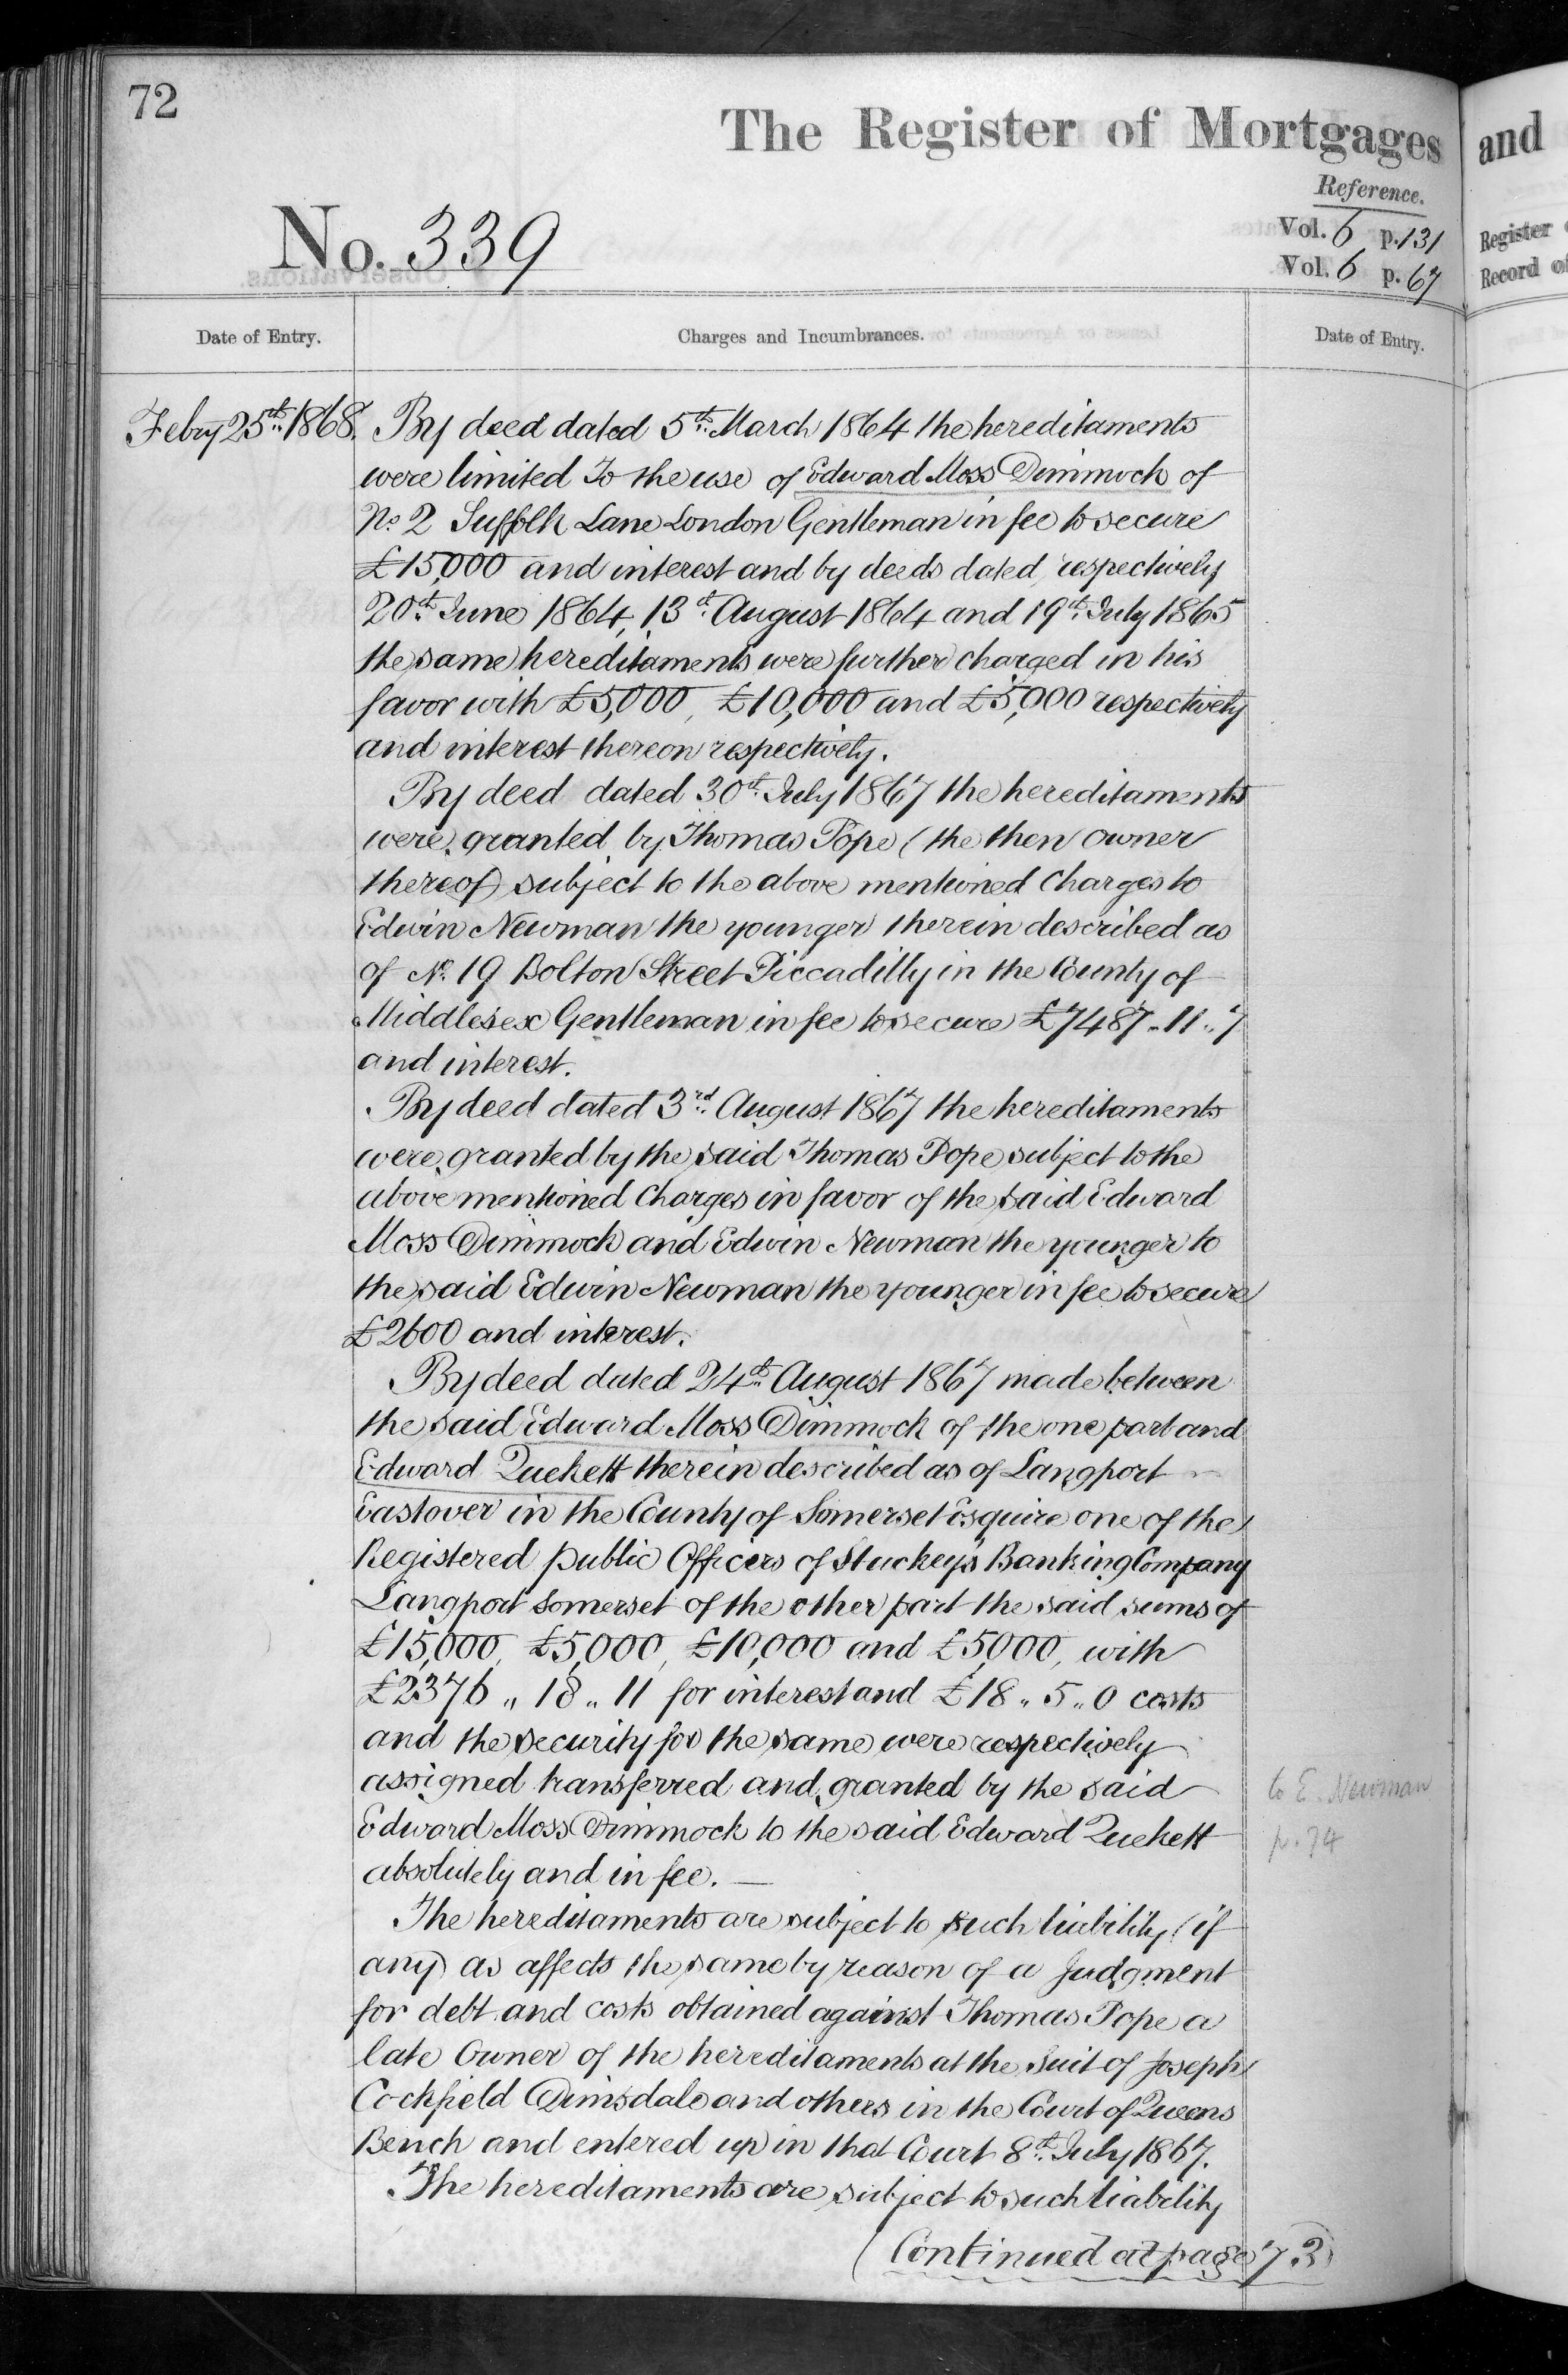 72
The Register of Mortgages
and
Reference.
No. 339
Vol. 6 p. 131
Vol. 6 p. 67
Register
Record of
Date of Entry.
Charges and Incumbrances.
Date of Entry.
Febry 25th 1868.
By deed dated 5th March 1864 the hereditaments
were limited To the use of Edward Moss Dimmock of
No 2 Suffolk Lane London Gentleman in fee to secure
£15,000 and interest and by deeds dated respectively
20th June 1864, 13th August 1864 and 19th July 1865
the same hereditaments were further charged in his
favor with £5,000, £10,000 and £5,000 respectively
and interest thereon respectively.
By deed dated 30th July 1867 the hereditaments
were granted by Thomas Pope (the then owner
thereof) subject to the above mentioned Charges to
Edwin Newman the younger therein described as
of No 19 Bolton Street Piccadilly in the County of
Middlesex Gentleman in fee to secure £7487 " 11 " 7
and interest.
By deed dated 3rd August 1867 the hereditaments
were granted by the said Thomas Pope subject to the
above mentioned Charges in favor of the said Edward
Moss Dimmock and Edwin Newman the younger to
the said Edwin Newman the younger in fee to secure
£2600 and interest.
By deed dated 24th August 1867 made between
the said Edward Moss Dimmock of the one part and
Edward Quekett therein described as of Langport
Eastover in the County of Somerset Esquire one of the
Registered public Officers of Stuckey's Banking Company
Langport Somerset of the other part the said sums of
£15,000, £5,000, £10,000 and £5,000, with
£2376 " 18 " 11 for interest and £18 " 5 " 0 costs
and the security for the same were respectively
assigned transferred and granted by the said
Edward Moss Dimmock to the said Edward Quekett
absolutely and in fee. —
to E. Newman
p. 74
The hereditaments are subject to such liability (if
any) as affects the same by reason of a Judgment
for debt and costs obtained against Thomas Pope a
late Owner of the hereditaments at the Suit of Joseph
Cockfield Dimsdale and others in the Court of Queens
Bench and entered up in that Court 8th July 1867.
The hereditaments are subject to such liability
(Continued at page 73)